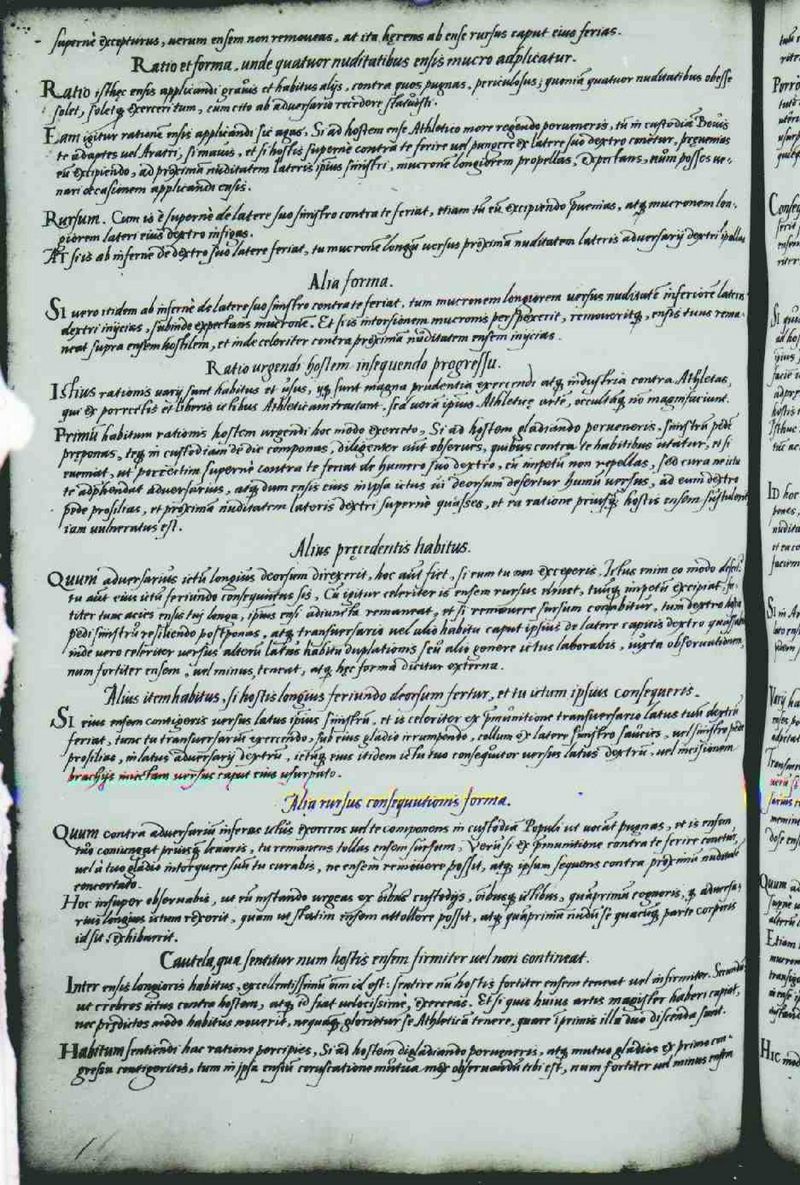 supernè excepturus, uerum ensem non remoueas, at ita herens ab ense rursus caput eius ferias.
Ratio et forma, unde quatuor nuditatibus ensis mucro adplicatur.
Ratio isthęc ensis applicandi grauis et habitus alijs, contra quos pugnas, periculosus; quoniā quatuor nuditatibus obesse
solet, soletq exerceri tum, cum cito ab aduersario recedere statuisti.
Eam igitur rationē ensis applicandi sic agas. Si ad hostem ense Athletico more regendo perueneris, tū in custodiam Bouis
te adaptes uel Aratri, si mauis, et si hostis supernè contra te ferire uel pungere ex latere suo dextro conetur, preuenias
eū excipiendo, ad proximā nuditatem lateris ipsius sinistri, mucronē longiorem propellas, expectans, num posses ue-
nari occasionem applicandi ensis.
Rursum. Cum is è supernè de latere suo sinistro contra te feriat, etiam tu eū excipiendo puenias, atq mucronem lon-
giorem lateri eius dextro infigas.
At si is ab infernè de dextro suo latere feriat, tu mucronē longū uersus proximā nuditatem lateris aduersarij dextri
Alia forma.
Si uero itidem ab infernè de latere suo sinistro contra te feriat, tum mucronem longiorem uersus nuditatē inferiorē lateris
dextri inijcias, subinde expectans mucrone. Et si is intorsionem mucronis perspexerit, remoueritq, ensis tuus rema-
neat supra ensem hostilem, et inde celeriter contra proximā nuditatem ensem inijcias.
Ratio urgendi hostem insequendo progressu.
Istius rationis uarij sunt habitus et usus, q sunt magna prudentia exercendi atq industria contra Athletas,
qui ex porrectis et liberis ictibus Athleticam tractant, sed uerā ipsius Athleticę artē, occultāq non magnifaciunt.
Primū habitum rationis hostem urgendi hoc modo exerceto, Si ad hostem gladiando perueneris, sinistrū pedē
preponas, teq in custodiam de die componas, diligenter aūt obserues, quibus contra te habitibus utatur, et si
eueniat, ut porrectim supernè contra te feriat de humero suo dextro, eū impetū non repellas, sed cura ne ictu
te adphendat aduersarius, atq dum ensis eius in ipsa ictus ui deorsum defertur humū uersus, ad eum dextro
pede prosilias, et proximā nuditatem lateris dextri supernè quasses, et ea ratione priusq hostis ensem sustulerit
iam uulneratus est.
Alius pręcedentis habitus.
Quum aduersarius ictū longius deorsum direxerit, hoc aūt fiet, si eum tu non exceperis. Ictus enim eo modo
tu aūt eius ictū feriundo consequutus sis, Cū igitur celeriter is ensem rursus eleuet, tuūq impetū excipiat,
titer tunc acies ensis tui longa, ipsius ensi adiuncta remaneat, et si remouere sursum conabitur, tum dextro
pedi sinistrū resiliendo postponas, atq transuersario uel alio habitu caput ipsius de latere capitis dextro
inde uero celeriter uersus alterū latus habitu duplationis seū alio genere ictus laborabis, iuxta obseruationem,
num fortiter ensem, uel minus teneat, atq hęc forma dicitur externa.
Alius item habitus, si hostis longius feriundo deorsum fertur, et tu ictum ipsius consequeris.
Si eius ensem contigeris uersus latus ipsius sinistrū, et is celeriter ex pmunitione transuersario latus tuū dextrū
feriat, tunc tu transuersariū exercendo, sub eius gladio irrumpendo, collum ex latere sinistro saucies, uel sinistro pede
prosilias, in latus aduersarij dextrū, ictūq eius itidem ictu tuo consequitor uersus latus dextrū, uel incisionem
brachijs uersus caput eius usurpato.
Alia rursus consequutionis forma.
Quum contra aduersariū inferas ictus exercens uel te componens in custodiā Populi ut uocāt pugnas, et is ensem
tuo coniungat priusq leuaris, tu remanens tollas ensem sursum. Verū si ex pmunitione contra te ferire conetur,
uel à tuo gladio intorquere suū tu curabis, ne ensem remouere possit, atq ipsum sequens contra proximā nuditatē
concertato.
Hoc insuper obseruabis, ut eū instando urgeas ex oībus custodijs, oībusq ictibus, quāprimū cognoris, q aduersa-
rius longius ictum rexerit, quam ut statim ensem attollere possit, atq quāprimū nudū se quacūq parte corporis
id sit, exhibuerit.
Cautela, qua sentitur num hostis ensem firmiter uel non contineat.
Inter ensis longioris habitus, excellentissimū oīm id est: sentire nū hostis fortiter ensem teneat uel infirmiter. Secundū
ut crebros ictus contra hostem, atq id fiat uelocissimè, exerceas. Et si quis huius artis magister haberi cupiat,
nec prędictos modo habitus nouerit, nequaq glorietur se Athleticā tenere, quare ī primis illa duo discenda sunt.
Habitum sentiendi hac ratione percipies, Si ad hostem digladiando perueneris, atq mutuo gladios ex primo con-
gressu contigeritis, tum in ipsa ensiū coruscatione mutua mox obseruandū tibi est, num fortiter uel minus ensem